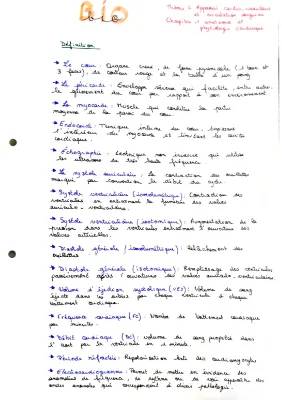 BIO
bio
Thème 2 Appareil cardio-vasculaire
et circulation sanguine
Chapitre 1 anatomie et
physiologie cardiaque
Définition
→ Le cœur : Organe creux, de forme pyramidale (1 base et
3 faces), de couleur rouge et la taille d'un poing
→ Le péricarde : Enveloppe séreuse qui facilite, entre autre,
le glissement du cœur par rapport à son environnement
→ Le myocarde : Muscle qui constitue la partie
moyenne de la paroi du cœur
→ Endocarde : Tunique interne du cœur, tapissant
l'intérieur du myocarde et limitant les cavités
cardiaques.
→ Échographie : technique non invasive qui utilise
les ultrasons de très haute fréquence
→ La systole auriculaire : La contraction des oreillettes
marque, par convention le début du cycle
→ Systole ventriculaire (isovolumétrique) : Contraction des
ventricules en entraînant la fermeture des valves
auriculo-ventriculaires.
→ Systole ventriculaire (isotonique) : Augmentation de la
pression dans les ventricules entraînant l'ouverture des
valves artérielles.
→ Diastole générale (isovolumétrique) : Relâchement des
oreillettes
→ Diastole générale (isotonique) : Remplissage des ventricules
passivement après l'ouverture des valves auriculo-ventriculaires
→ Volume d'éjection systolique (VES) : Volume de sang
éjecté dans les artères par chaque ventricule à chaque
battement cardiaque.
→ Fréquence cardiaque (FC) : Nombre de battement cardiaque
par minute.
→ Débit cardiaque (DC) : volume de sang propulsé dans
par le ventricule en 1 minute.
→ Période réfractée : Repolarisation des cardiomyocytes
→ Électrocardiogramme : Permet de mettre en évidence des
anomalies de fréquence, de rythme ou de voir apparaître des
ondes anormales qui correspondent à divers pathologies.